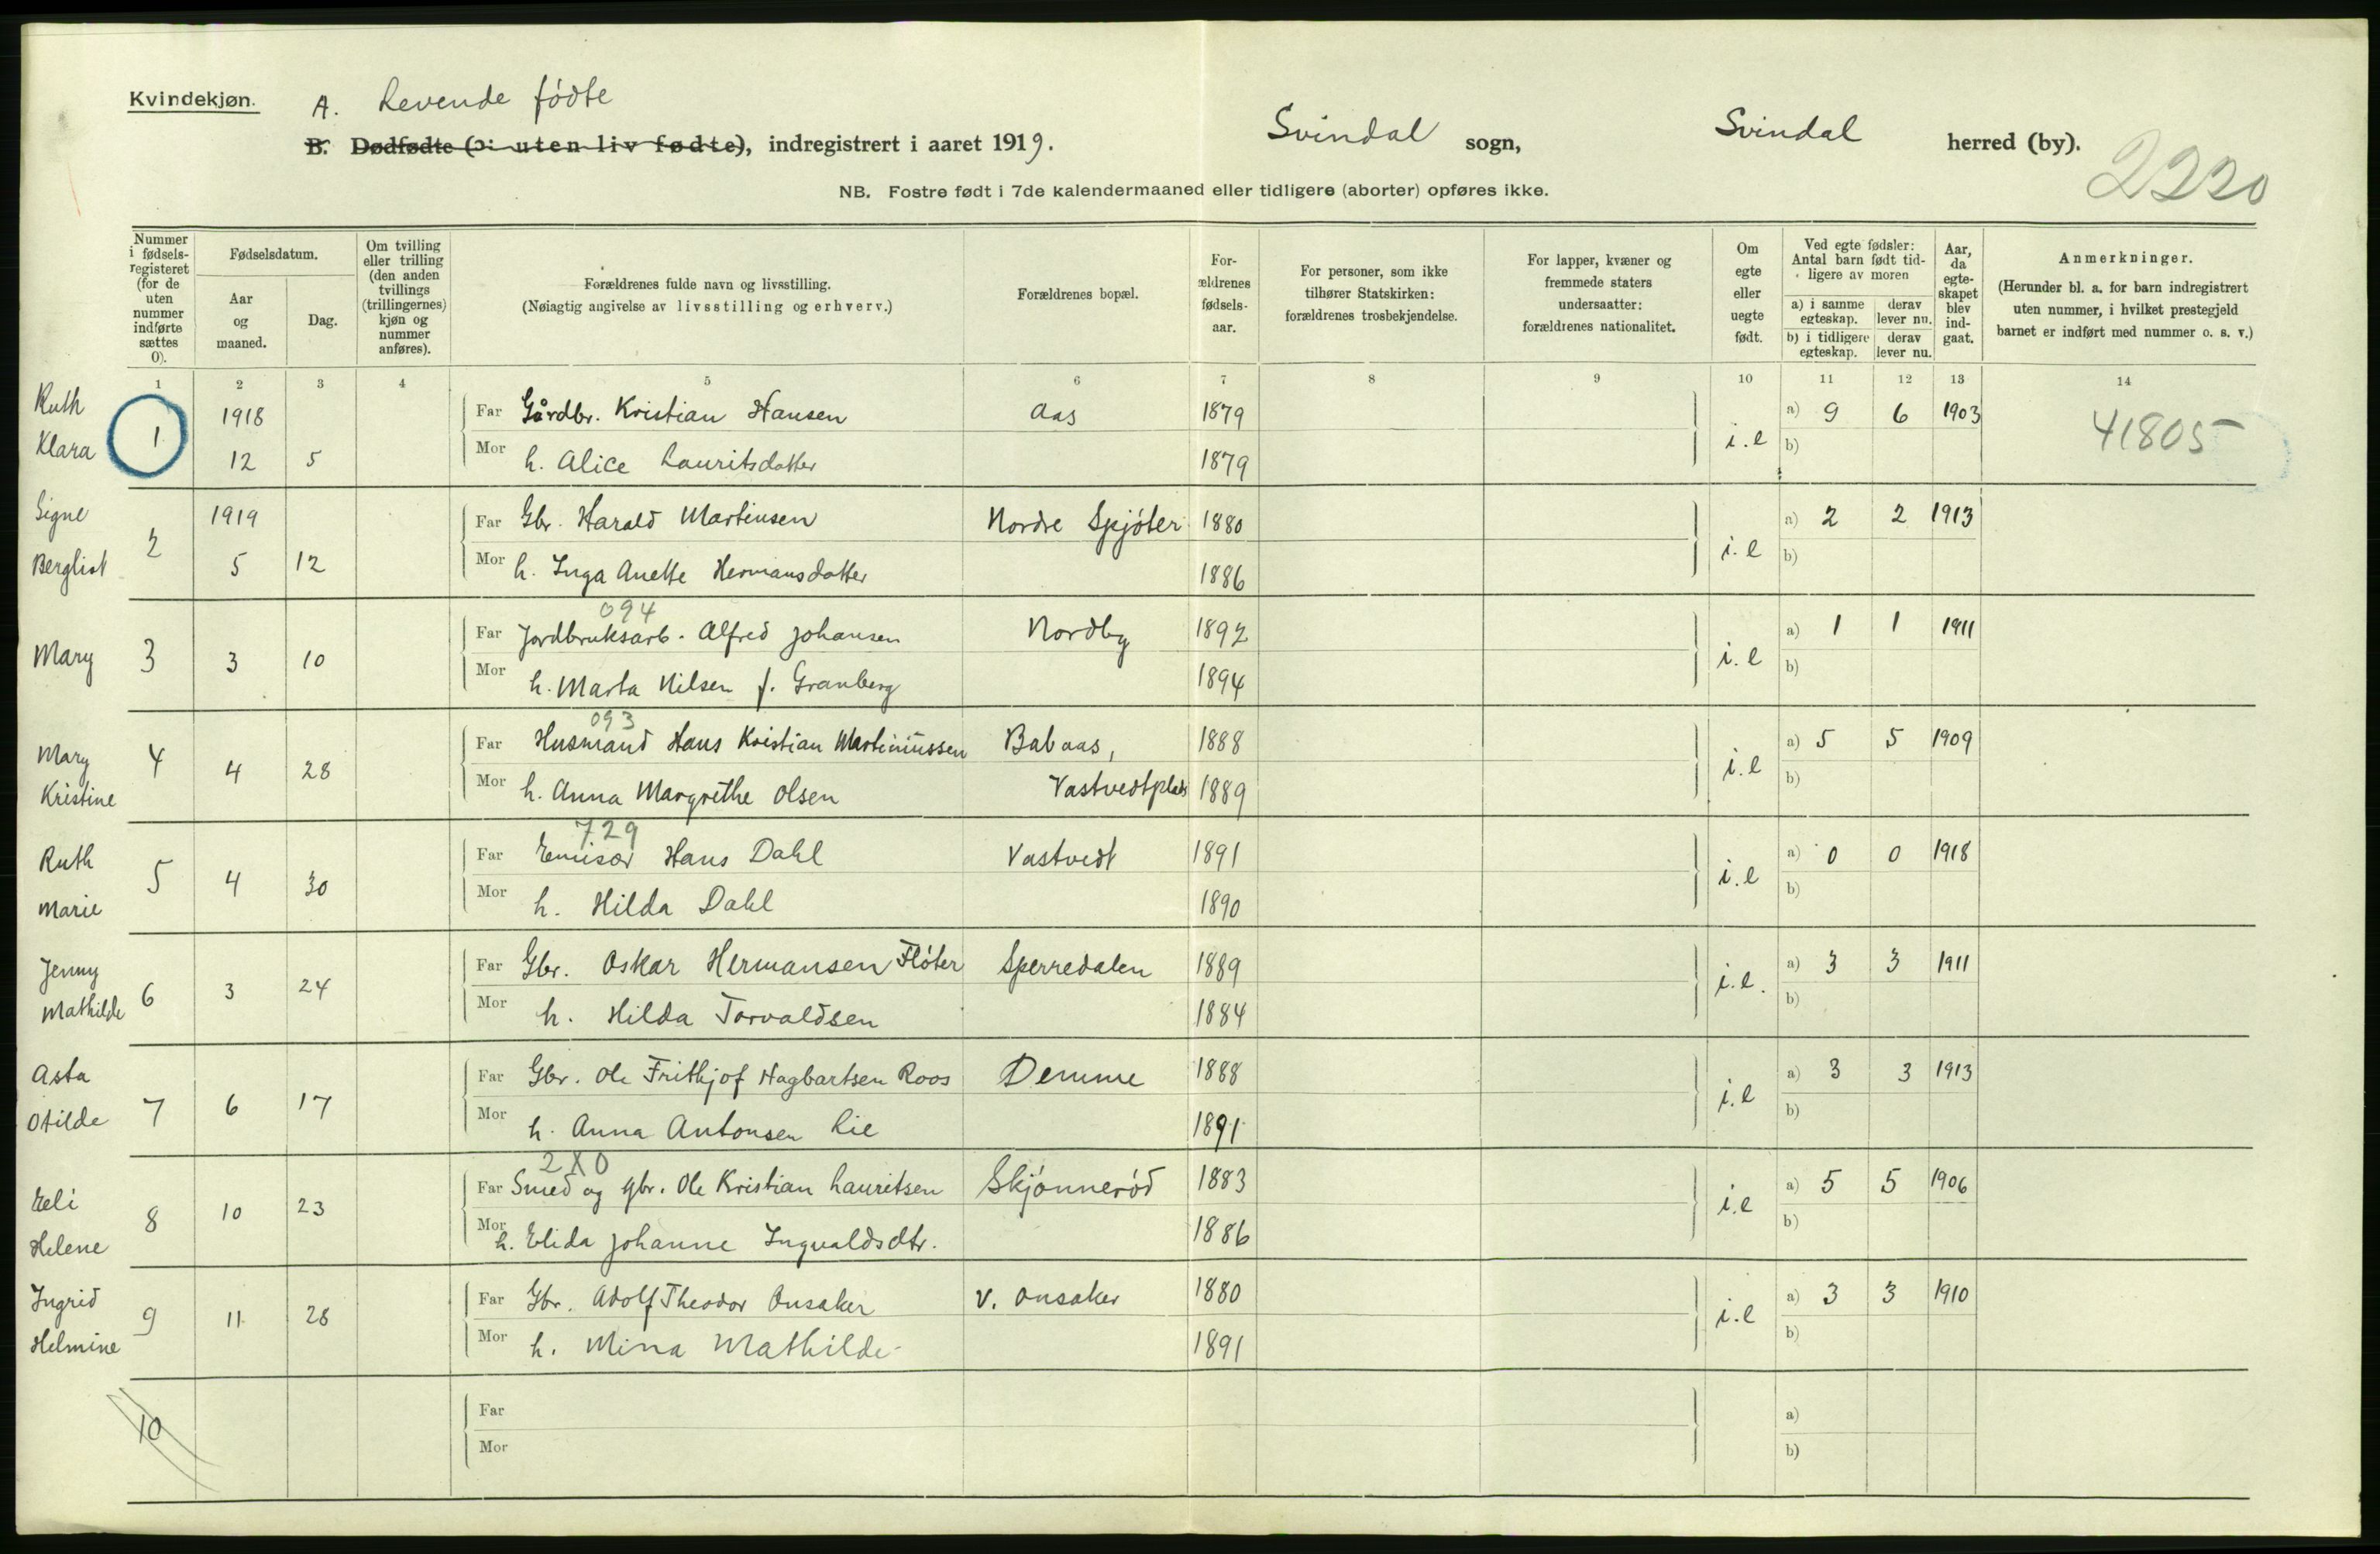 Kvindekjøn.
A. Levende fødte
B. Dødfødte (ɔ: uten liv fødte), indregistrert i aaret 1919.
Svindal sogn, Svindal herred (by).
2220
NB. Fostre født i 7de kalendermaaned eller tidligere (aborter) opføres ikke.
Nummer i fødsels-registeret (for de uten nummer indførte sættes 0).
Fødselsdatum.
Aar og maaned.
Dag.
Om tvilling eller trilling (den anden tvillings (trillingernes) kjøn og nummer anføres).
Forældrenes fulde navn og livsstilling.
(Nøiagtig angivelse av livsstilling og erhverv.)
Forældrenes bopæl.
For-ældrenes fødsels-aar.
For personer, som ikke tilhører Statskirken: forældrenes trosbekjendelse.
For lapper, kvæner og fremmede staters undersaatter: forældrenes nationalitet.
Om egte eller uegte født.
Ved egte fødsler: Antal barn født tid-ligere av moren
a) i samme egteskap. derav lever nu.
b) i tidligere egteskap. derav lever nu.
Aar, da egte-skapet blev ind-gaat.
Anmerkninger.
(Herunder bl. a. for barn indregistrert uten nummer, i hvilket prestegjeld barnet er indført med nummer o. s. v.)
1 2 3 4 5 6 7 8 9 10 11 12 13 14
Ruth 1918 Far Gårdbr. Kristian Hansen Aas 1879 a) 9 6 1903
Klara 1 12 5 Mor h. Alice Lauritsdatter 1879 i.e b) 41805
Signe 1919 Far Gbr. Harald Martinsen Nordre Spjöter 1880 a) 2 2 1913
Bergliot 2 5 12 Mor h. Inga Anette Hermansdatter 1886 i.e b)
094
Far Jordbruksarb. Alfred Johansen Nordby 1892 a) 1 1 1911
Mary 3 3 10 Mor h. Marta Nilsen f. Granberg 1894 i.e b)
093
Mary 4 4 28 Far Husmand Hans Kristian Martiniussen Babaas, 1888 a) 5 5 1909
Kristine Mor h. Anna Margrethe Olsen Vastvedtplads 1889 i.e b)
729
Ruth 5 4 30 Far Emisær Hans Dahl Vastvedt 1891 a) 0 0 1918
Marie Mor h. Hilda Dahl 1890 i.e b)
Jenny Far Gbr. Oskar Hermansen Flöter Sperredalen 1889 a) 3 3 1911
Mathilde 6 3 24 Mor h. Hilda Torvaldsen 1884 i.e. b)
Asta Far Gbr. Ole Frithjof Hagbartsen Roos Demme 1888 a) 3 3 1913
Otilde 7 6 17 Mor h. Anna Antonsen Lie 1891 i.e b)
2X0
Eli Far Smed og gbr. Ole Kristian Lauritsen Skjönneröd 1883 a) 5 5 1906
Helene 8 10 23 Mor h. Elida Johanne Ingvaldsdtr. 1886 i.e b)
Ingrid Far Gbr. Adolf Theodor Onsaker V. Onsaker 1880 a) 3 3 1910
Helmine 9 11 28 Mor h. Mina Mathilde 1891 i.e b)
10 Far a)
Mor b)